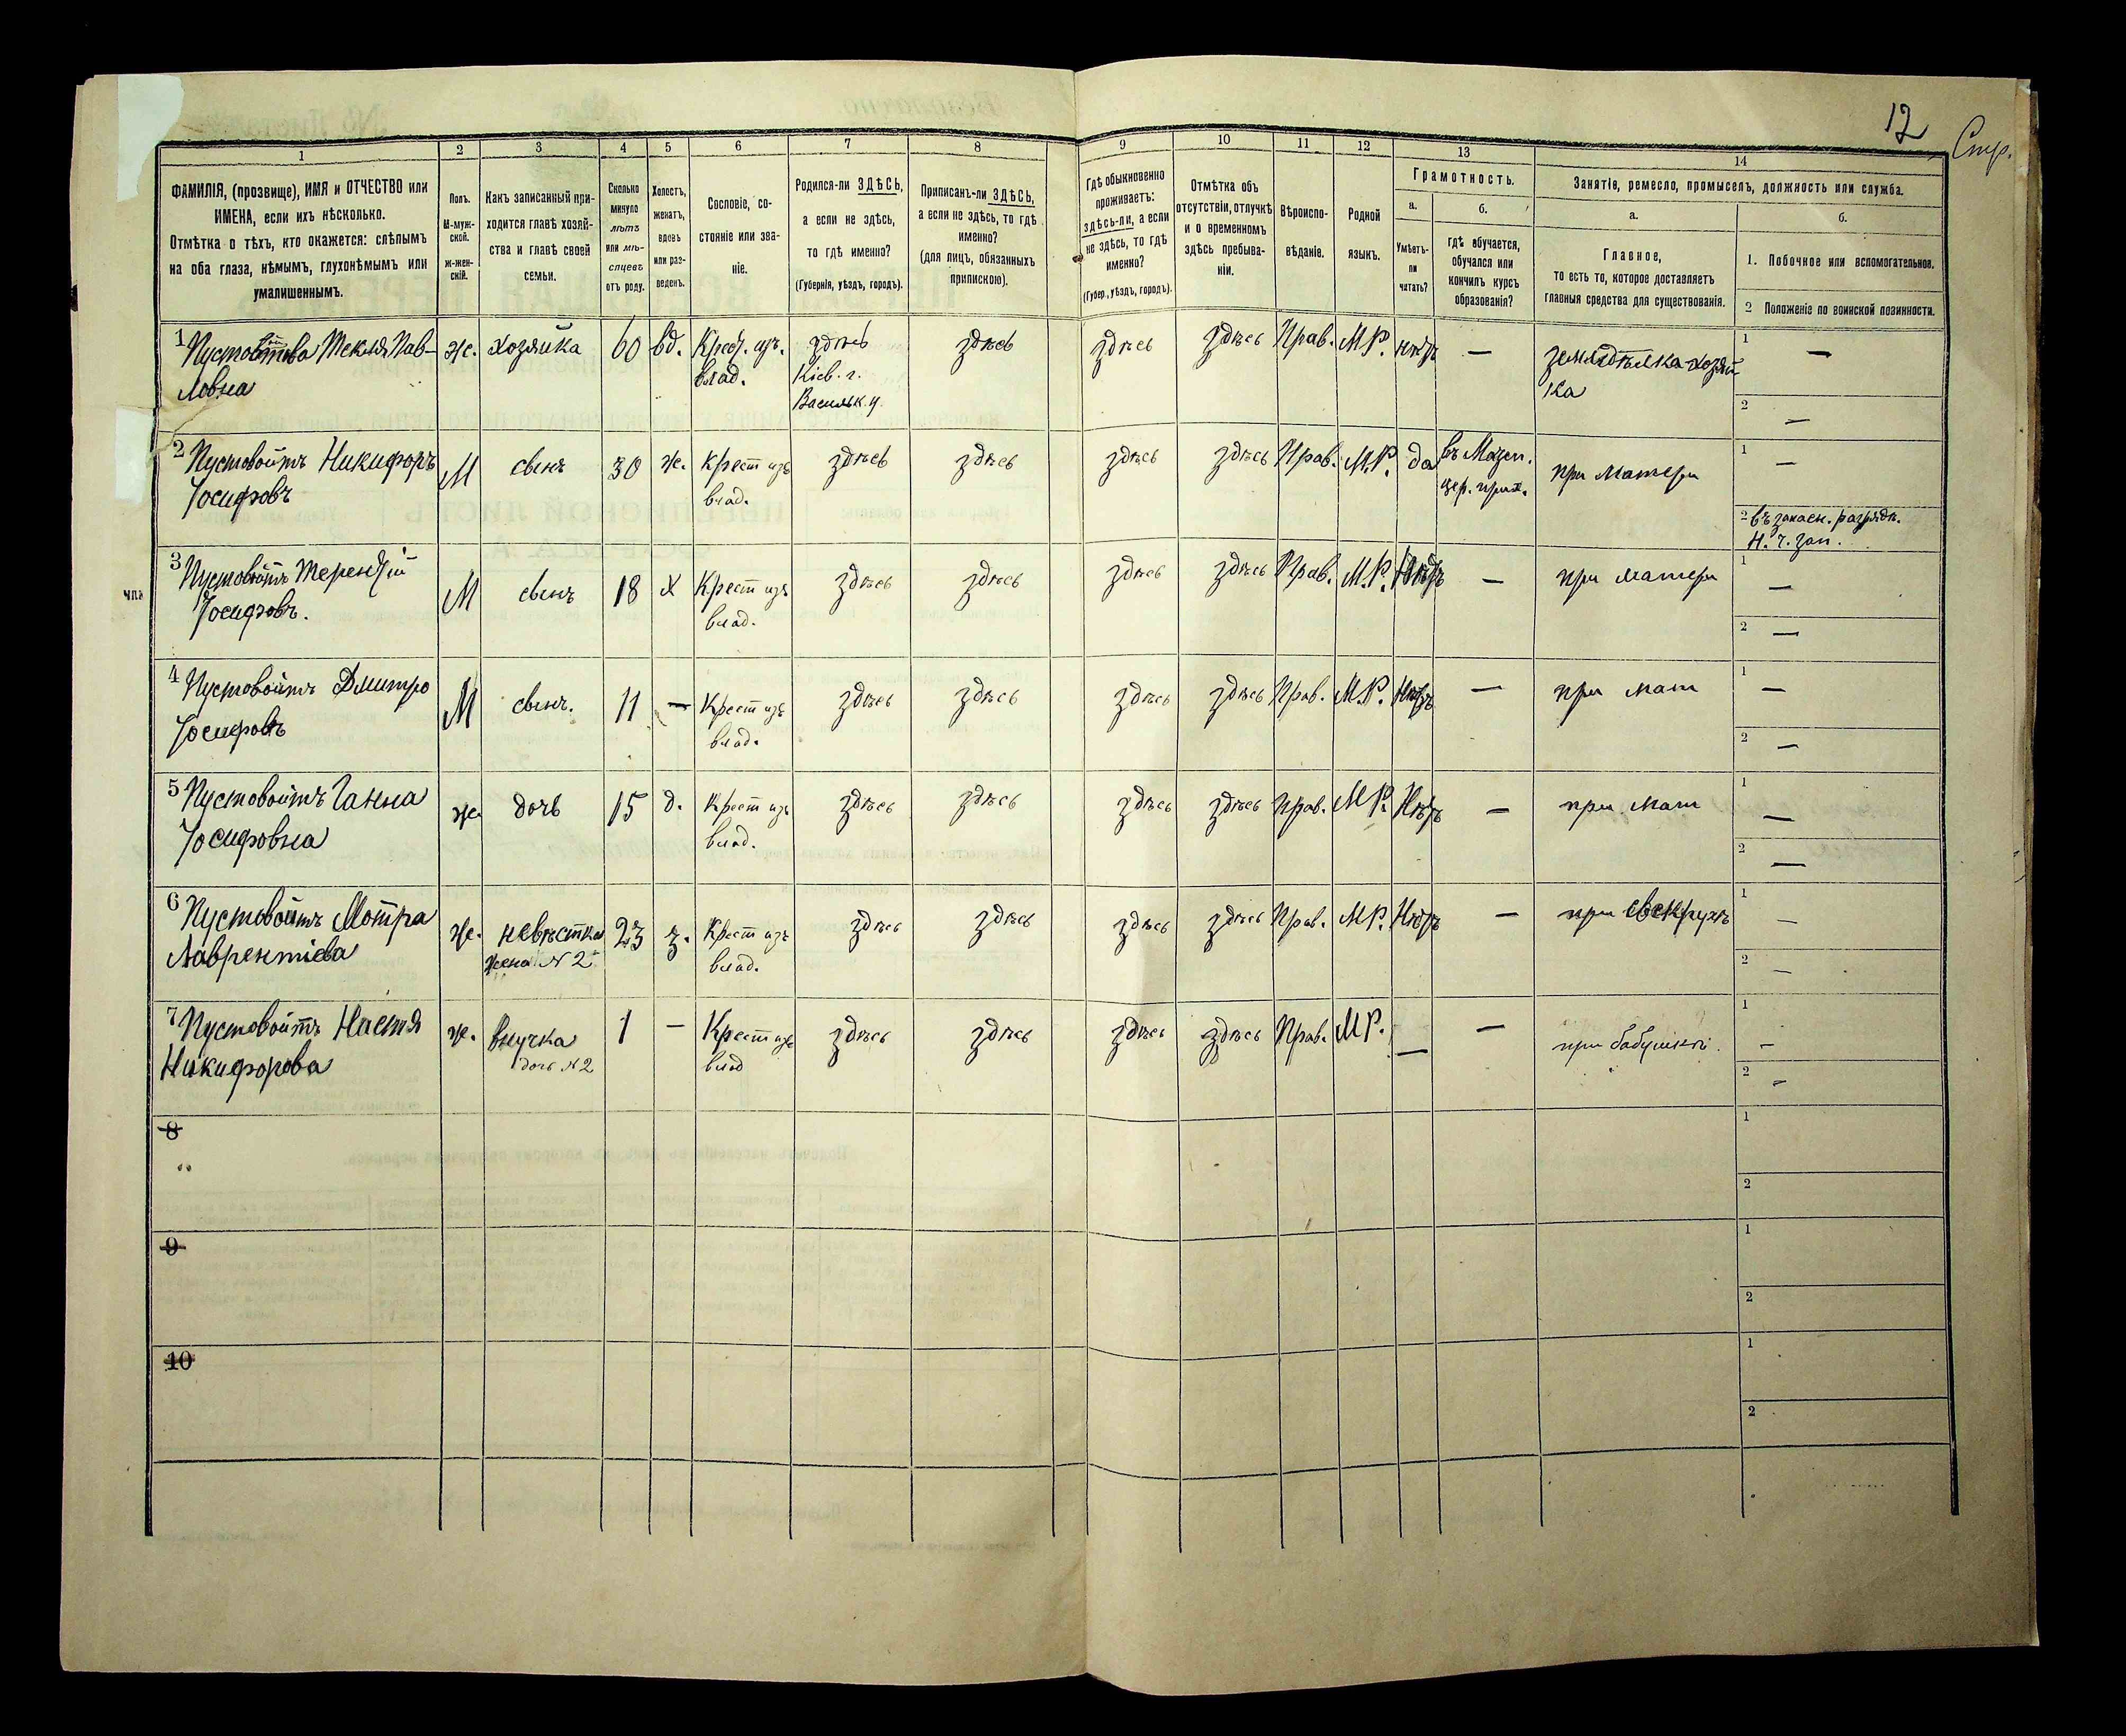 12
Стр.
1
2
3
4
5
6
7
8
9
10
11
12
13
14
ФАМИЛІЯ, (прозвище), ИМЯ и ОТЧЕСТВО или
ИМЕНА, если ихъ нѣсколько.
Отмѣтка о тѣхъ, кто окажется: слѣпымъ
на оба глаза, нѣмымъ, глухонѣмымъ или
умалишеннымъ.
Полъ.
М-муж-
ской.
ж-жен-
скій.
Какъ записанный при-
ходится главѣ хозяй-
ства и главѣ своей
семьи.
Сколько
минуло
лѣтъ
или мѣ-
сяцевъ
отъ роду.
Холостъ,
женатъ,
вдовъ
или раз-
веденъ.
Сословіе, со-
стояніе или зва-
ніе.
Родился-ли ЗДѢСЬ,
а если не здѣсь,
то гдѣ именно?
(Губернія, уѣздъ, городъ).
Приписанъ-ли ЗДѢСЬ,
а если не здѣсь, то гдѣ
именно?
(для лицъ, обязанныхъ
припискою).
Гдѣ обыкновенно
проживаетъ:
здѣсь-ли, а если
не здѣсь, то гдѣ
именно?
(Губер., уѣздъ, городъ).
Отмѣтка объ
отсутствіи, отлучкѣ
и о временномъ
здѣсь пребыва-
ніи.
Вѣроиспо-
вѣданіе.
Родной
языкъ.
Грамотность.
а.
Умѣетъ-
ли
читать?
б.
гдѣ обучается,
обучался или
кончилъ курсъ
образованія?
Занятіе, ремесло, промыселъ, должность или служба.
а.
Главное,
то есть то, которое доставляетъ
главныя средства для существованія.
б.
1. Побочное или вспомогательное.
2 Положеніе по воинской повинности.
1 Текля Пав-
ловна
ж. хозяйка 60 вд. Крест. изъ.
влад.
здѣсь
Кіев. г.
Васильк. у.
здѣсь здѣсь здѣсь Прав. М.Р. нѣтъ — земледѣлка-хозяй-
ка
1 —
2 —
2 Пустовойтъ Никифоръ
Іосифовъ
М сынъ 30 ж. Крест изъ
влад.
здѣсь здѣсь здѣсь здѣсь Прав. М.Р. да въ Мазеп.
цер. прих.
при Матери
1 —
2 въ запасн. разрядѣ.
Н. ч. зап.
3 Пустовойтъ Терентій
Іосифовъ.
М сынъ 18 х Крест изъ
влад.
здѣсь здѣсь здѣсь здѣсь Прав. М.Р. Нѣтъ — при матери
1 —
2 —
4 Пустовойтъ Дмитро
Іосифовъ
М сынъ. 11 — Крест изъ
влад.
здѣсь здѣсь здѣсь здѣсь Прав. М.Р. Нѣтъ — при мат
1 —
2 —
5 Пустовойтъ Ганна
Іосифовна
ж. дочь 15 д. Крест изъ
влад.
здѣсь здѣсь здѣсь здѣсь Прав. М.Р. Нѣтъ — при мат
1 —
2 —
6 Пустовойтъ Мотра
Лаврентіева
Ж. невѣстка
жена N 2
23 з. Крест изъ
влад.
здѣсь здѣсь здѣсь здѣсь Прав. М.Р. Нѣтъ — при свекрухѣ
1 —
2 —
7 Пустовойтъ Настя
Никифорова
ж. внучка
дочь N 2
1 — Крест изъ
влад
здѣсь здѣсь здѣсь здѣсь Прав. М.Р. — — при бабушкѣ.
1 —
2 —
8
1
2
9
1
2
10
1
2